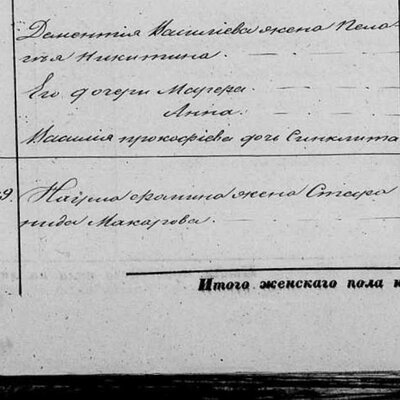 Дементия Васильева жена Пела-
гья Никитина.
Его дочери Марѳа.
Анна.
Василия прокофіева дочь Синклита
9. Наума фомина жена Стефа
нида Макарова.
Итого женскаго пола